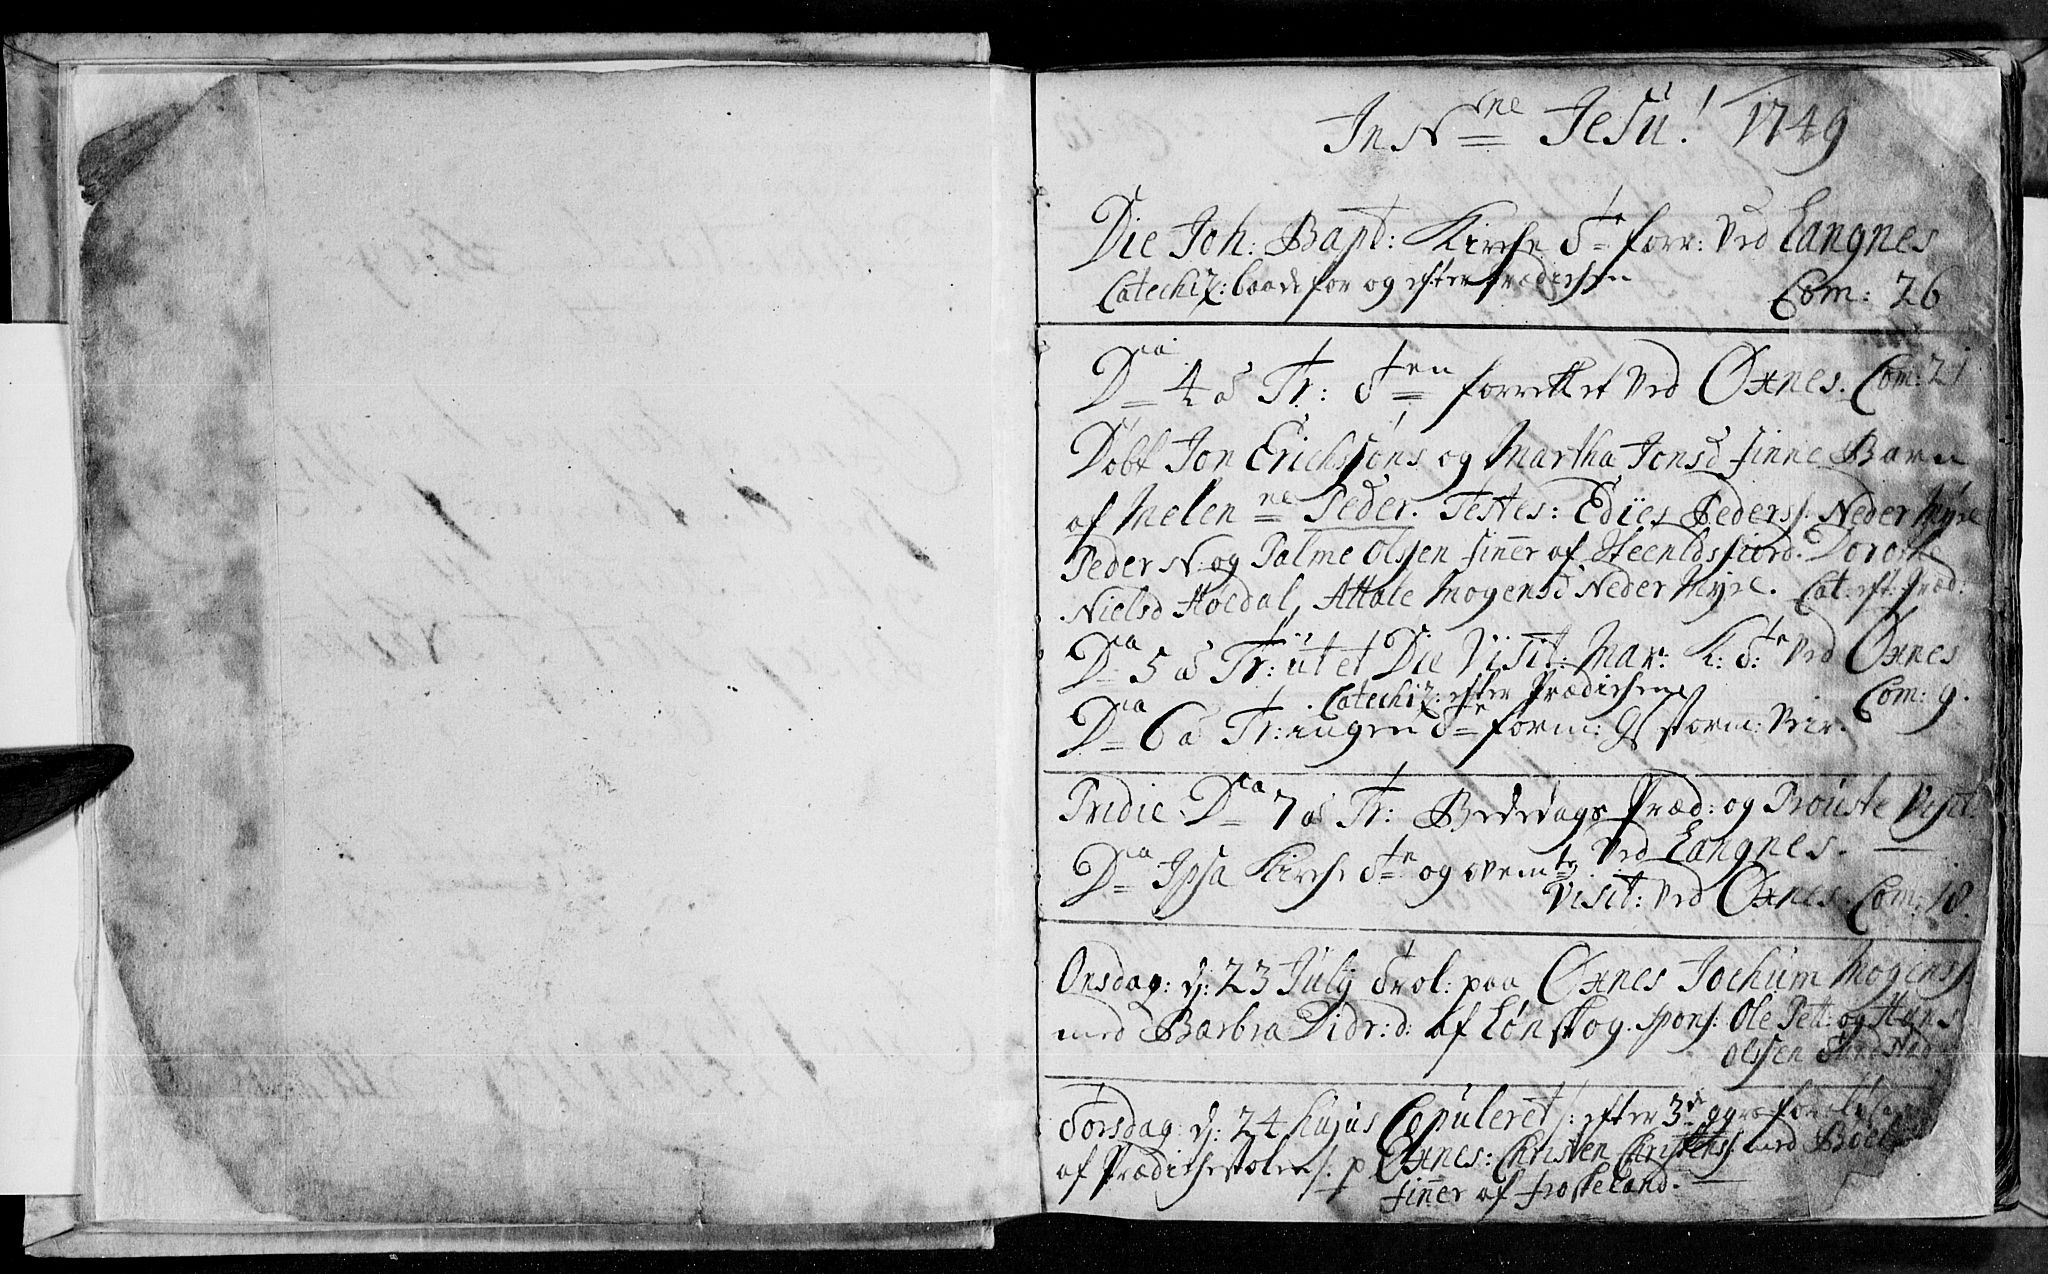 In Nne Jesu! 1749
Die Joh: Bapt: Kirche Tte forr: ved Langnes
Catechiz: baade for og efter Prædichen Com: 26
Dca 4 a Tr: Tten forrettet ved Øxnes. Com: 21
Döbt Jon Erichsöns og Martha Jonsd finne Barn
af Melen ne Peder. Testes: Edies Peders. Neder Myre
Peder N: og Palme Olssen finner af Steenldsfiord. Dorothe
Nielsd Höedal, Attale Mogensd Neder Myre. Cat: eft: Præd:
Dca 5 a Tr: ut et Die Visit: Mar: K: Tte ved Øxnes
Catechiz: efter Prædichene Com: 9.
Dca 6 a Tr: ingen Tte form: storm: Veir.
Pridie Dca 7 a Tr: Bededags Præd: og Prouste Visit:
ved Langnes.
Dca Ipsa Kirche Tte og
Visit: ved Øxnes. Com: 18.
Onsdag: d: 23 July Trol: paa Øxnes Jochum Mogens.
med Barbra Didr: d: af Lönskog. spons: Ole Pett: og Hans
Olssen
Torsdag: d: 24 hujus Copuleret /: efter 3de
af Prædichestolen /: p Øxnes: Christen Christens: med Böel
finner af Frosteland.